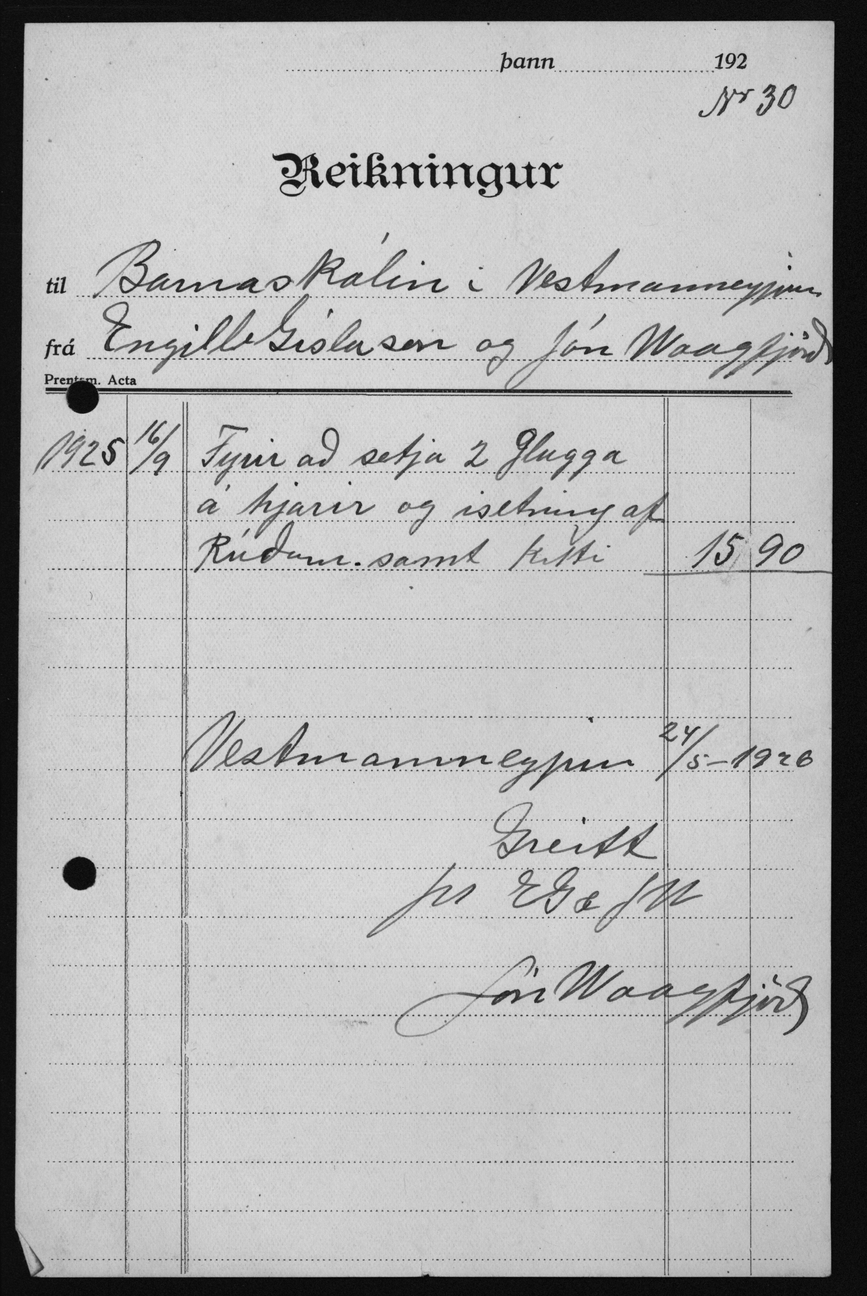 þann 192
Nr 30
Reikningur
til Barnaskólin i Vestmanneyjum
frá Engilb Gíslason og Jón Waagfjörð
Prentsm. Acta
1925 16/9 Fyrir að setja 2 Glugga
á hjarir og isetning af
Rúðum. samt Kitti 15 90
Vestmanneyjum 24/5-1926
Greitt
pr EG & JW
Jón Waagfjörð